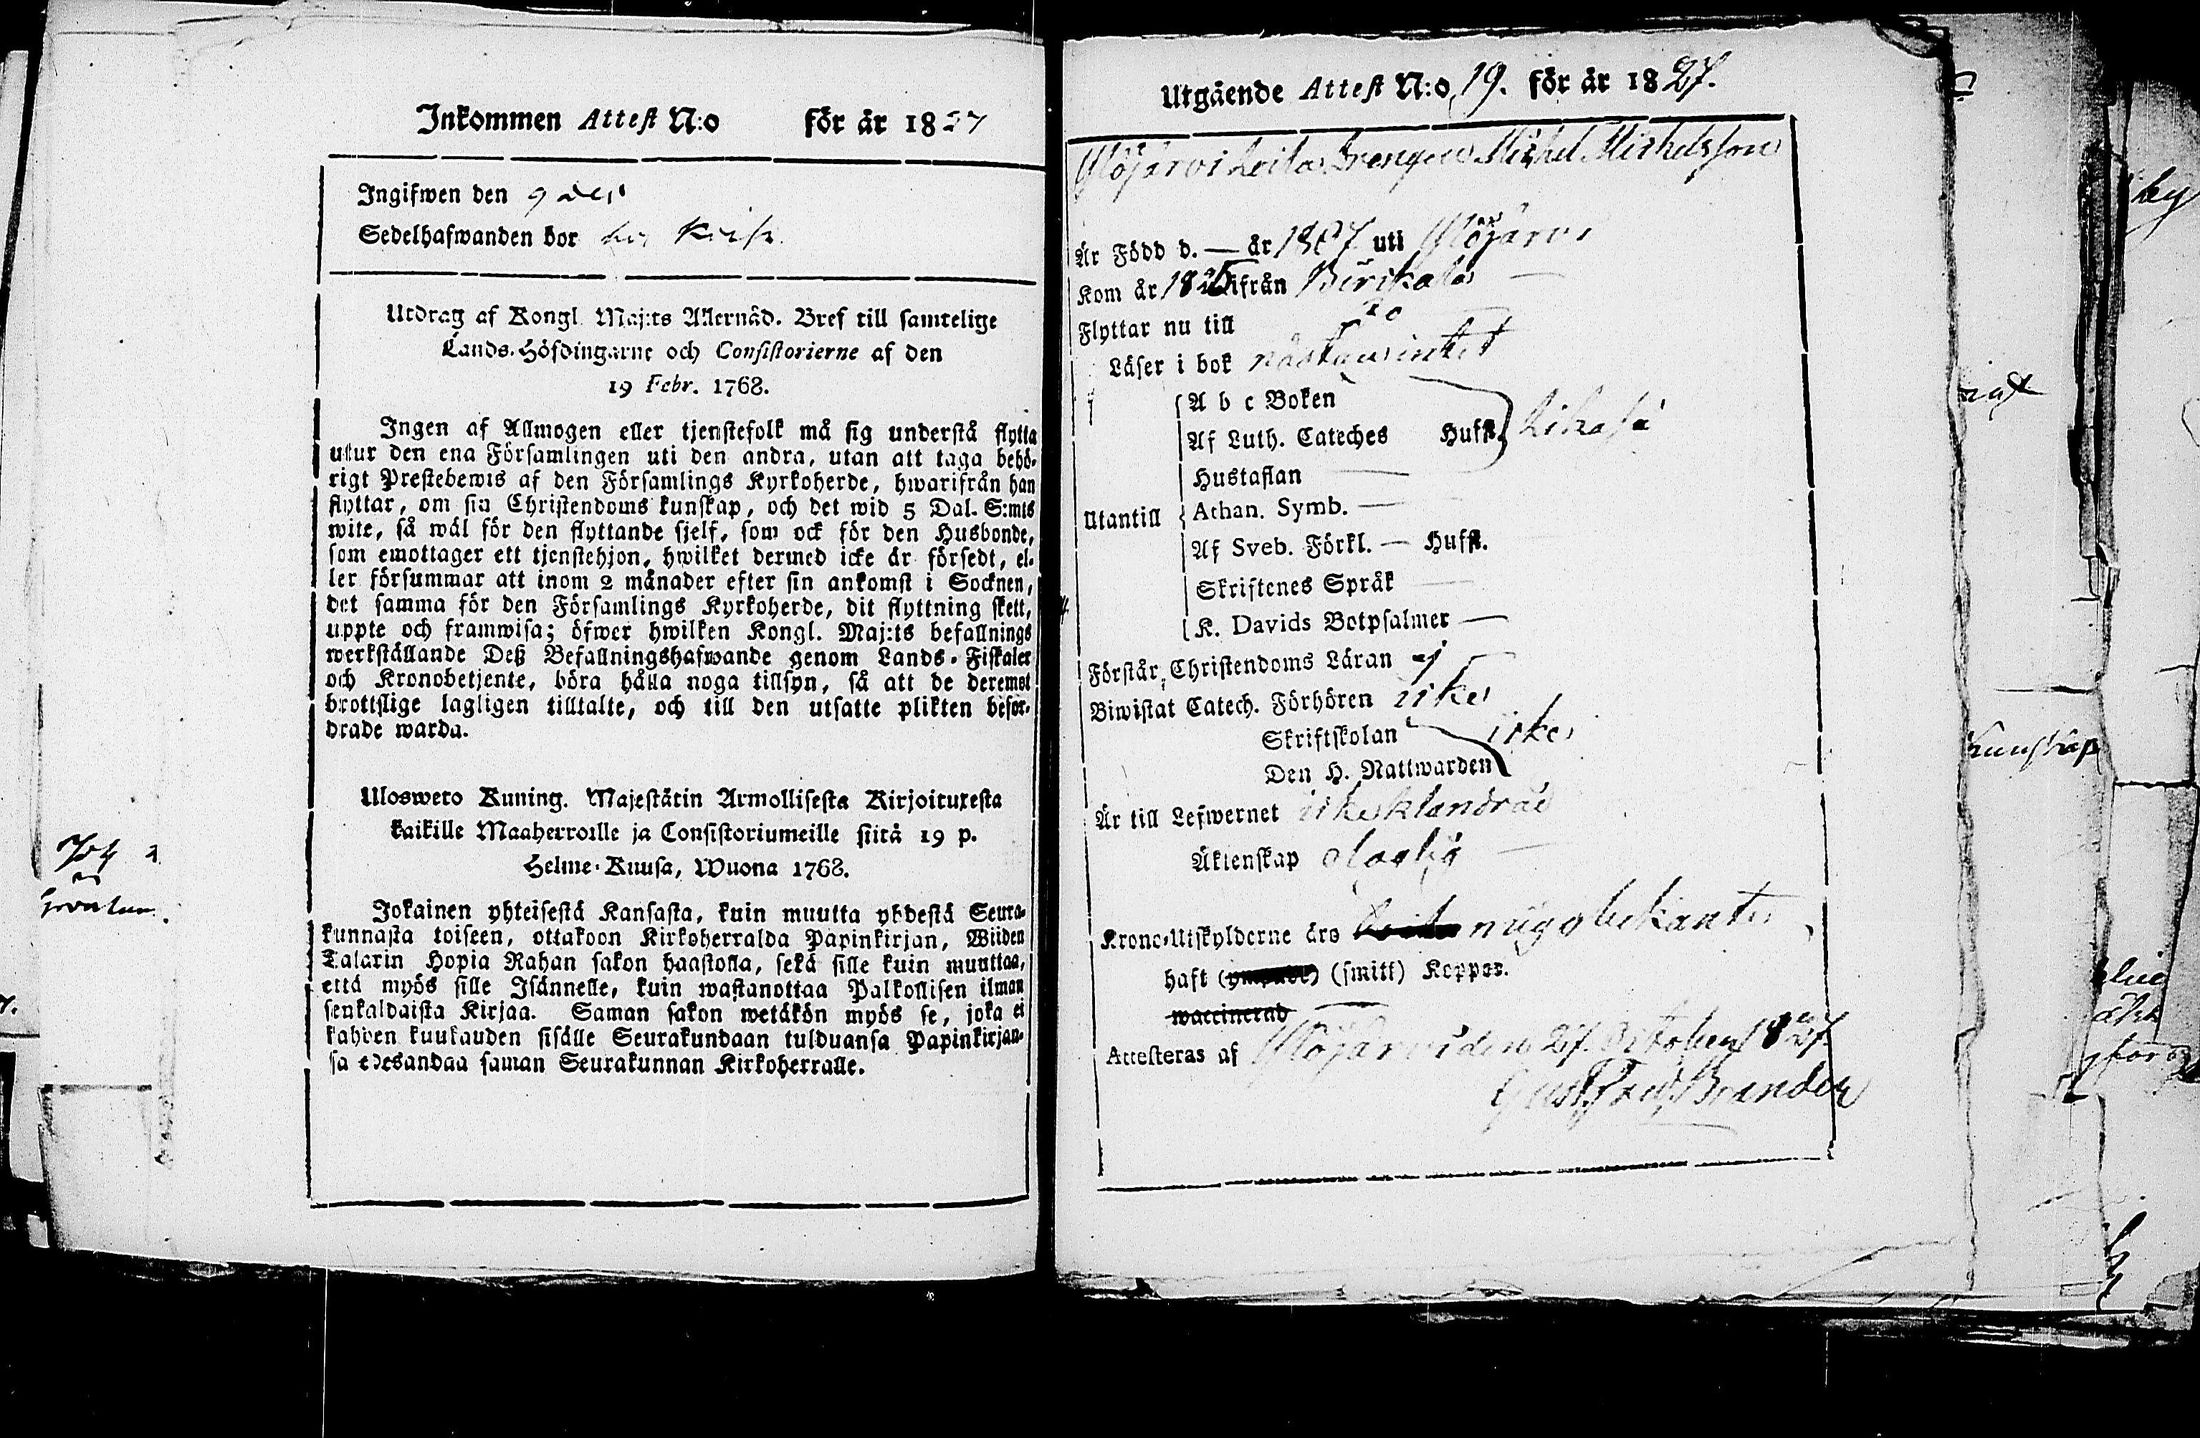 Inkommen Attest N:o för år 1827
Ingifwen den 9 Dec
Sedelhafwanden bor hos
Utdrag af Kongl. Maj:ts Allernåd. Bref till samtelige
Lands-Höfdingarne och Consistorierne af den
19 Febr. 1768.
Ingen af Allmogen eller tjenstefolk må sig understå flytta
utur den ena Församlingen uti den andra, utan att taga behö-
rigt Prestebewis af den Församlings Kyrkoherde, hwarifrån han
flyttar, om sin Christendoms kunskap, och det wid 5 Dal. S:mts
wite, så wäl för den flyttande sjelf, som ock för den Husbonde,
som emottager ett tjenstehjon, hwilket dermed icke är försedt, el-
ler försummar att inom 2 månader efter sin ankomst i Socknen,
det samma för den Församlings Kyrkoherde, dit flyttning skett,
uppte och framwisa; öfwer hwilken Kongl. Maj:ts befallnings
werkställande Deß Befallningshafwande genom Lands-Fiskaler
och Kronobetjente, böra hålla noga tillsyn, så att de deremot
brottslige lagligen tilltalte, och till den utsatte plikten befor-
drade warda.
Ulosweto Kuning. Majestätin Armollisesta Kirjoituxesta
kaikille Maaherroille ja Consistoriumeille siitä 19 p.
Helme-Kuusa, Wuona 1768.
Jokainen yhteisestä Kansasta, kuin muutta yhdestä Seura-
kunnasta toiseen, ottakoon Kirkoherralda Papinkirjan, Wiiden
Talarin Hopia Rahan sakon haastolla, sekä sille kuin muuttaa,
että myös sille Isännelle, kuin wastanottaa Palkollisen ilman
senkaldaista Kirjaa. Saman sakon wetäkön myös se, joka ei
kahden kuukauden sisälle Seurakundaan tulduansa Papinkirjan-
sa edesandaa saman Seurakunnan Kirkoherralle.
Utgående Attest N:o 19. för år 1827.
Ylöjärvi Leikas Drengen Michel Michelsson
Är Född d. — år 1807 uti Ylöjärvi
Kom år 1826 ifrån Birikala —
Flyttar nu till
Läser i bok nästan intet
A b c Boken
Af Luth. Cateches Huff. likaså
Hustaflan —
Utantill Athan. Symb. —
Af Sveb. Förkl. — Huff.
Skriftenes Språk —
K. Davids Botpsalmer —
Förstår Christendoms Läran ej —
Biwistat Catech. Förhören icke
Skriftskolan icke
Den H. Nattwarden
Är till Lefwernet icke klandrad
Äktenskap olaglig —
Krono-Utskylderne äro mig obekante
haft (smitt) Koppor.
waccinerad
Attesteras af Ylöjärvi den 27. October 1827.
Gust. Fred. Brander
kunskap